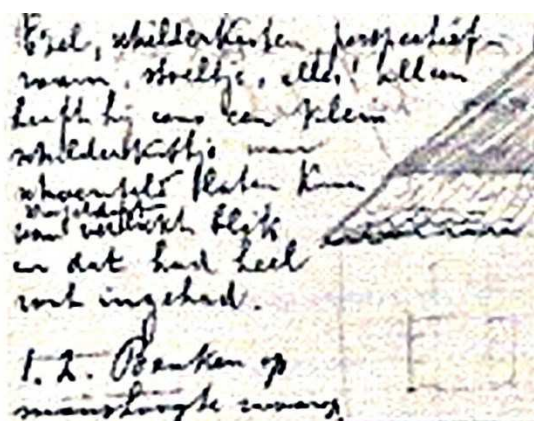 Ezel, schilderkisten, perspectief-
raam, stoeltje, alles! alleen
heeft hij eens een klein
schilderkistje van
laten
van vertikt blik
en dat had heel
wat ingehad.
1. 2. Banken op
manshoogte waarop